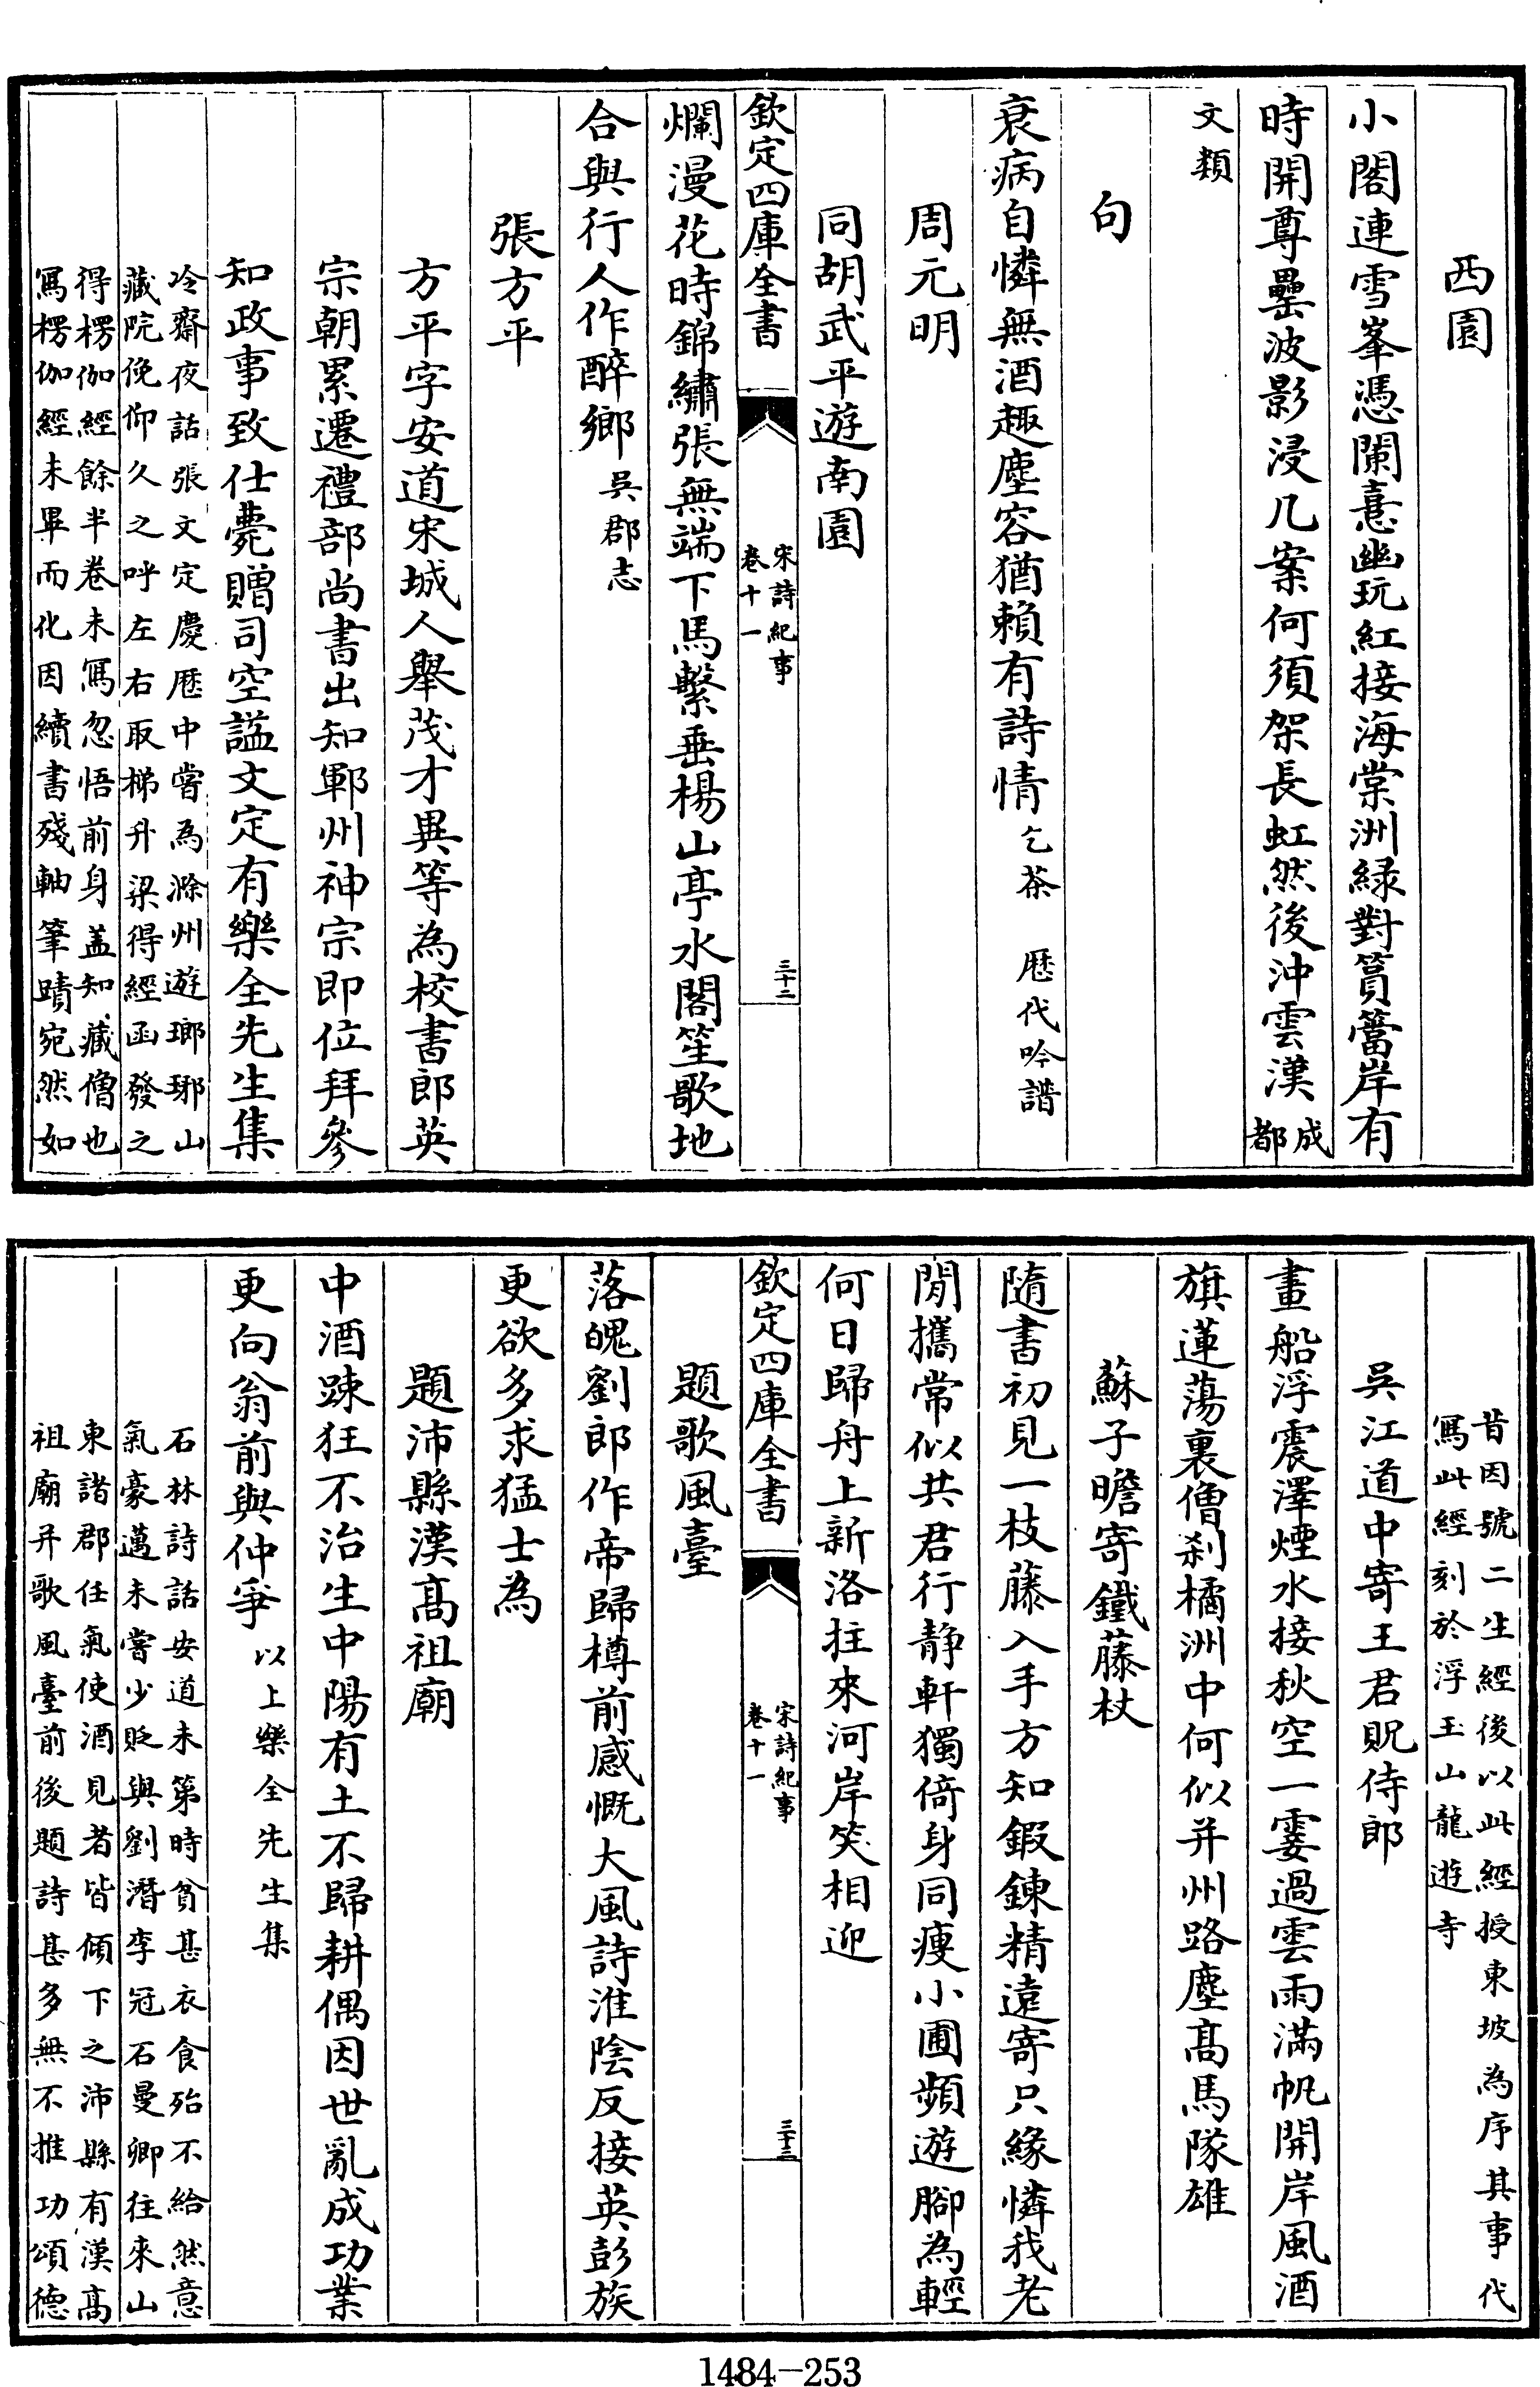 西園
小閣連雪峯憑闌意幽玩紅接海棠洲綠對篔簹岸有
時開尊罍波影浸几案何須架長虹然後沖雲漢成都
文類
句
衰病自憐無酒趣塵容猶賴有詩情乞茶 歴代吟譜
周元明
同胡武平遊南園
欽定四庫全書 宋詩紀事卷十一 三十二
爛漫花時錦繡張無端下馬繫垂楊山亭水閣笙歌地
合與行人作醉鄉吳郡志
張方平
方平字安道宋城人舉茂才異等為校書郎英
宗朝累遷禮部尚書出知鄆州神宗即位拜參
知政事致仕薨贈司空諡文定有樂全先生集
冷齋夜話張文定慶歴中嘗為滁州遊瑯琊山
藏院俛仰久之呼左右取梯升梁得經函發之
得楞伽經餘半卷未冩忽悟前身盖知藏僧也
冩楞伽經未畢而化因續書殘軸筆蹟宛然如
昔因號二生經後以此經授東坡為序其事代
冩此經刻於浮玉山龍遊寺
吳江道中寄王君貺侍郎
畫船浮震澤煙水接秋空一霎過雲雨滿帆開岸風酒
旗蓮蕩裏僧刹橘洲中何似并州路塵髙馬隊雄
蘇子瞻寄鐵藤杖
隨書初見一枝藤入手方知鍜鍊精遠寄只緣憐我老
閒攜常似共君行静軒獨倚身同瘦小圃頻遊腳為輕
何日歸舟上新洛拄來河岸笑相迎
欽定四庫全書 宋詩紀事卷十一 三十三
題歌風臺
落魄劉郎作帝歸樽前感慨大風詩淮陰反接英彭族
更欲多求猛士為
題沛縣漢髙祖廟
中酒踈狂不治生中陽有土不歸耕偶因世亂成功業
更向翁前與仲爭以上樂全先生集
石林詩話安道未第時貧甚衣食殆不給然意
氣豪邁未嘗少貶與劉潛李冠石曼卿往來山
東諸郡任氣使酒見者皆傾下之沛縣有漢髙
祖廟并歌風臺前後題詩甚多無不推功頌德
1484-253